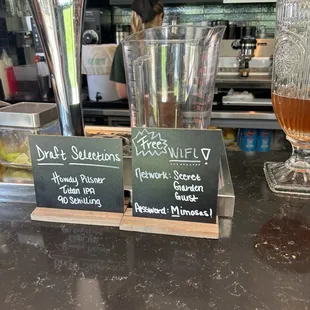 Draft Selections
Howdy Pilsner
Titan IPA
90 Schilling
Free WIFI
Network: Secret
Garden
Guest
Password: Mimosas!